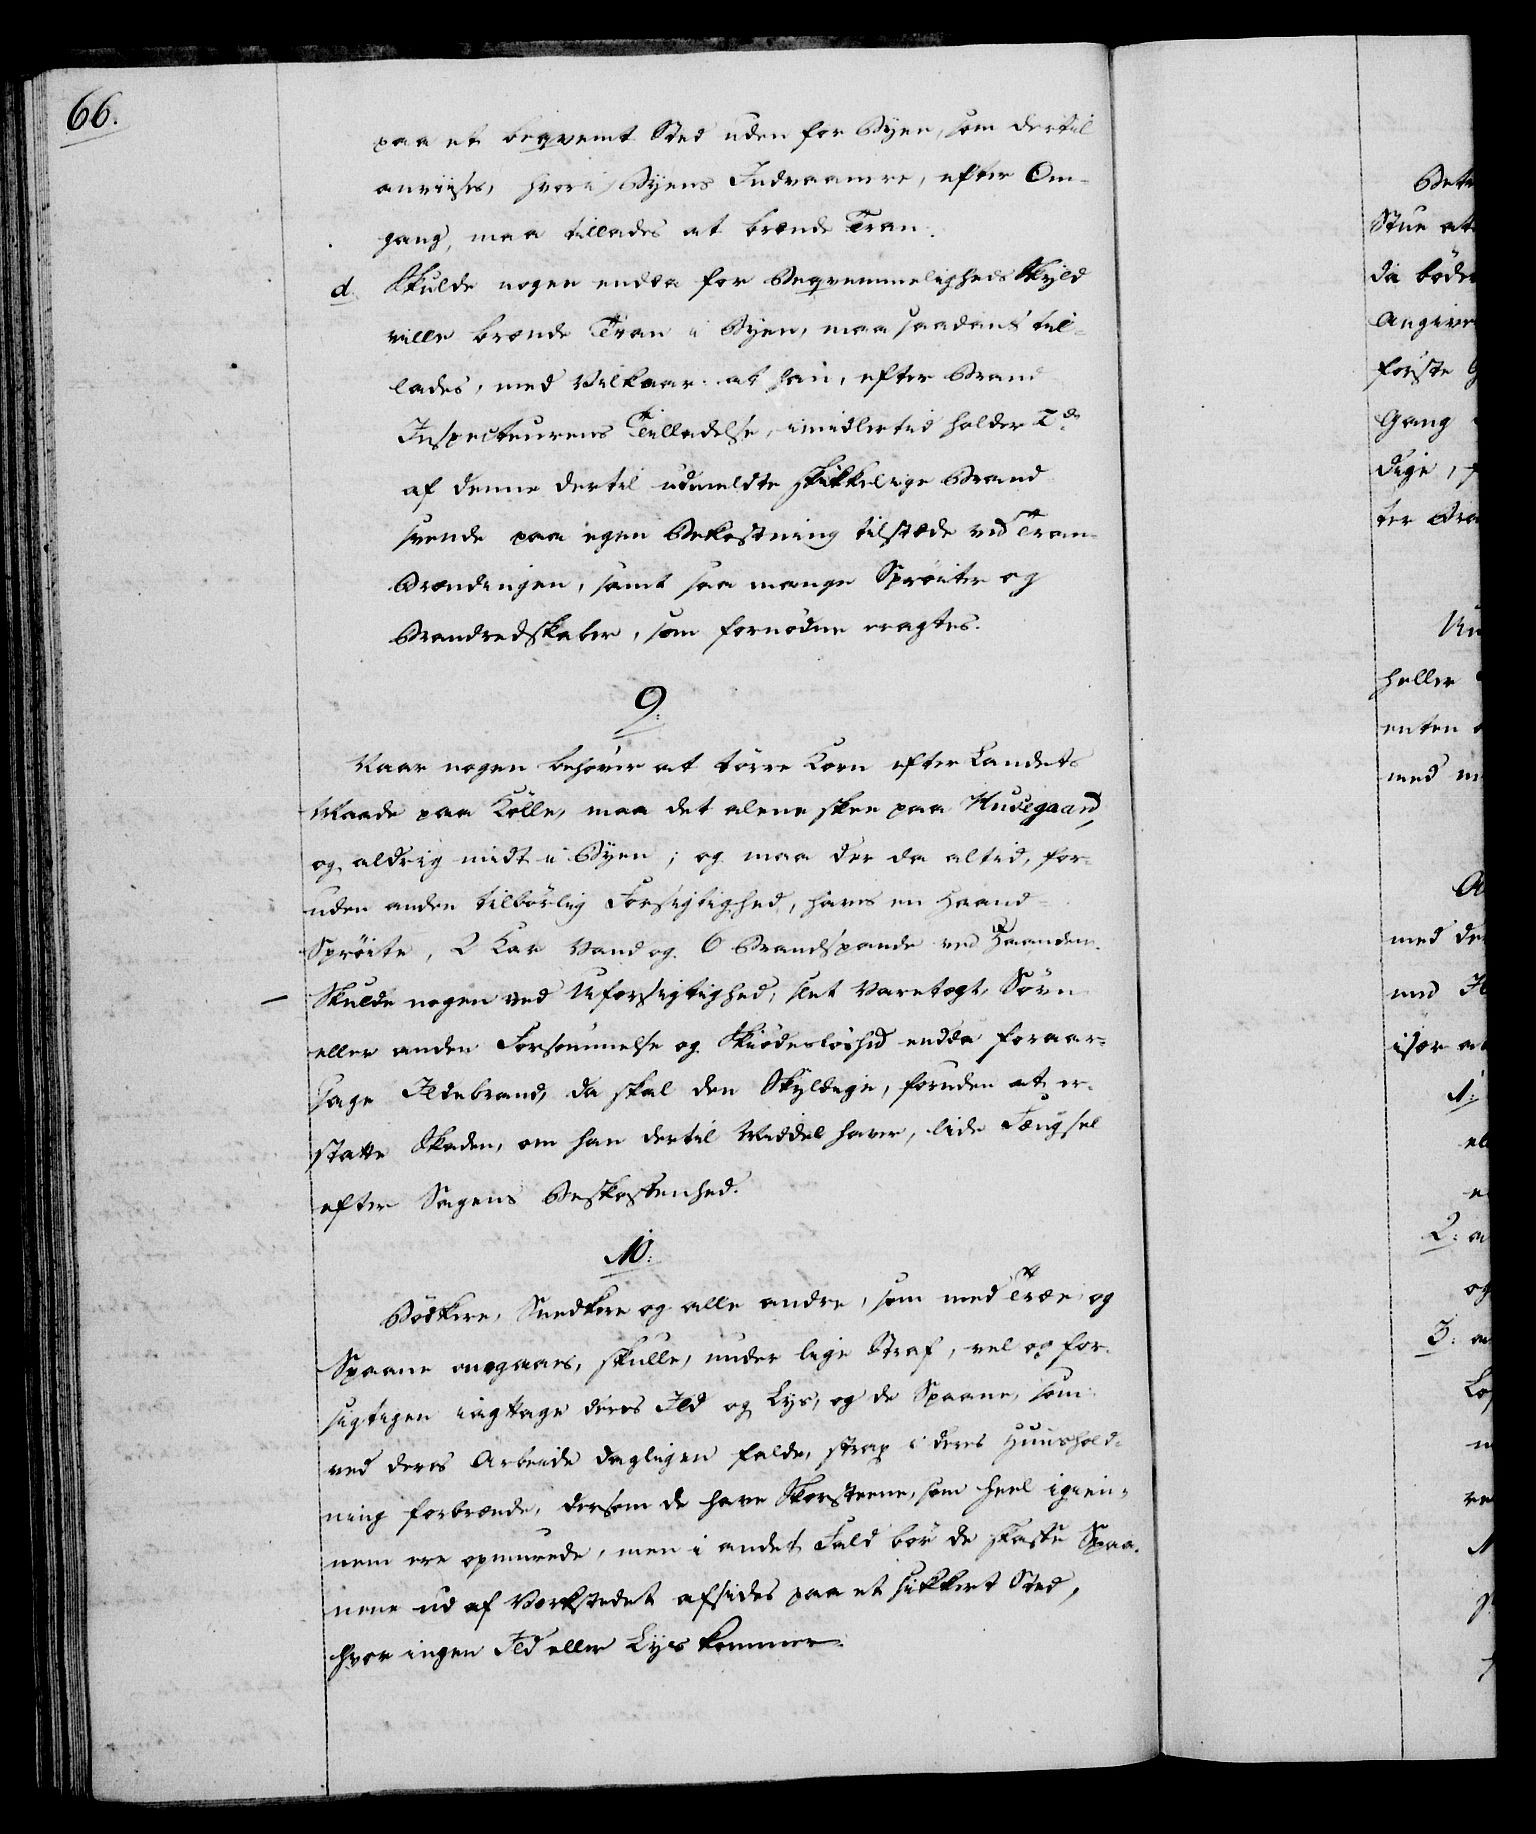 66.
paa et beqvemt Sted uden for Byen, som dertil
anviises, hvori Byens Indvaanere, efter Om-
gang, maa tillades at brænde Tran.
d. Skulde nogen endda for Beqvemmeligheds Skyld
ville brænde Tran i Byen, maa saadant til-
lades, med Vilkaar at han, efter Brand
Inspecteurens Tilladelse, imidlertid holder 2de
af denne dertil udmeldte skikkelige Brand
svende paa egen Bekostning tilstæde ved Tran-
Brændingen, samt saa mange Sprøiter og
Brandredskaber, som fornødne eragtes.
9.
Naar nogen behøver at tørre Korn efter Landets
Maade paa Kølle, maa det alene skee paa Husegaard,
og aldrig midt i Byen; og maa der da altid, for-
uden anden tilbørlig Forsigtighed, haves en Haand-
Sprøite, 2 Kar Vand og 6 Brandspande ved Haanden.
Skulde nogen ved Uforsigtighed, slet Varetægt, Søvn
eller anden Forsømmelse og Skiødesløshed endda foraar-
sage Ildebrand, da skal den Skyldige, foruden at er-
statte Skaden, om han dertil Middel haver, lide Fængsel
efter Sagens Beskaffenhed.
10.
Bødkere, Snedkere og alle andre, som med Træe og
Spaane omgaaes, skulle, under lige Straf, vel og for-
sigtigen iagttage deres Ild og Lys, og de Spaane, som
ved deres Arbeide dagligen falde, strax i deres Huushold-
ning forbrænde, dersom de have Skorsteene, som heel igien-
nem ere opmurede, men i andet Fald bør de skaffe Spaa-
nene ud af Værkstedet afsides paa et sikkert Sted,
hvor ingen Ild eller Lys kommer.
Stue at
da bøde
Angive
første
Gang
dige,
heller
enten
med
med
2:
og
3: